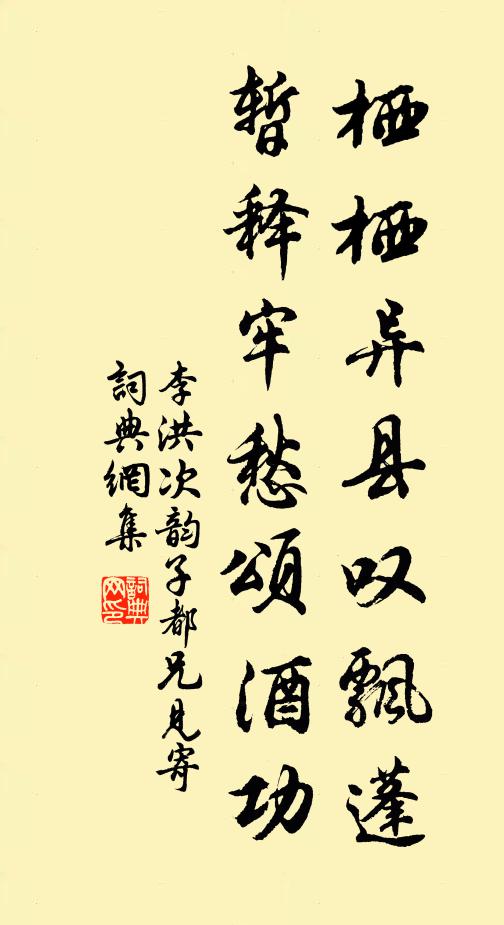 栖栖异县叹飘蓬
暂释牢愁颂酒功
李洪次韵子都兄见寄
詞典網集
詞典
网印